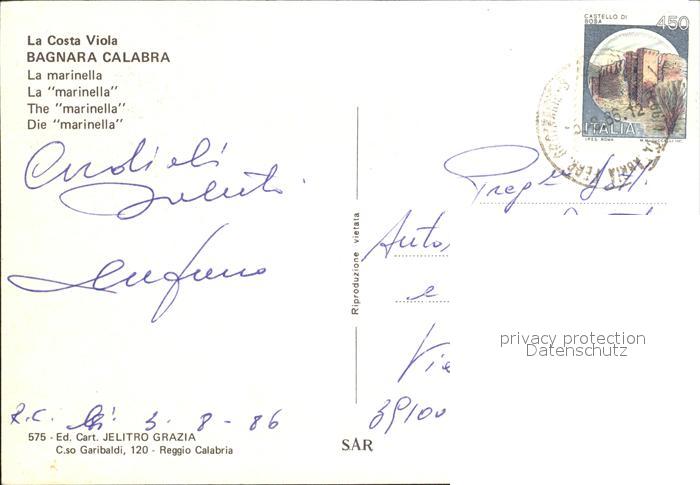 La Costa Viola
BAGNARA CALABRA
La marinella
La "marinella"
The "marinella"
Die "marinella"
Cordiali
Saluti
R.C. li 3-8-86
575 - Ed. Cart. JELITRO GRAZIA
C.so Garibaldi, 120 - Reggio Calabria
Riproduzione vietata
SAR
CASTELLO DI
BOSA
450
ITALIA
I.P.Z.S. ROMA
Preg. Dott.
Auto
e
Via
39100
privacy protection
Datenschutz